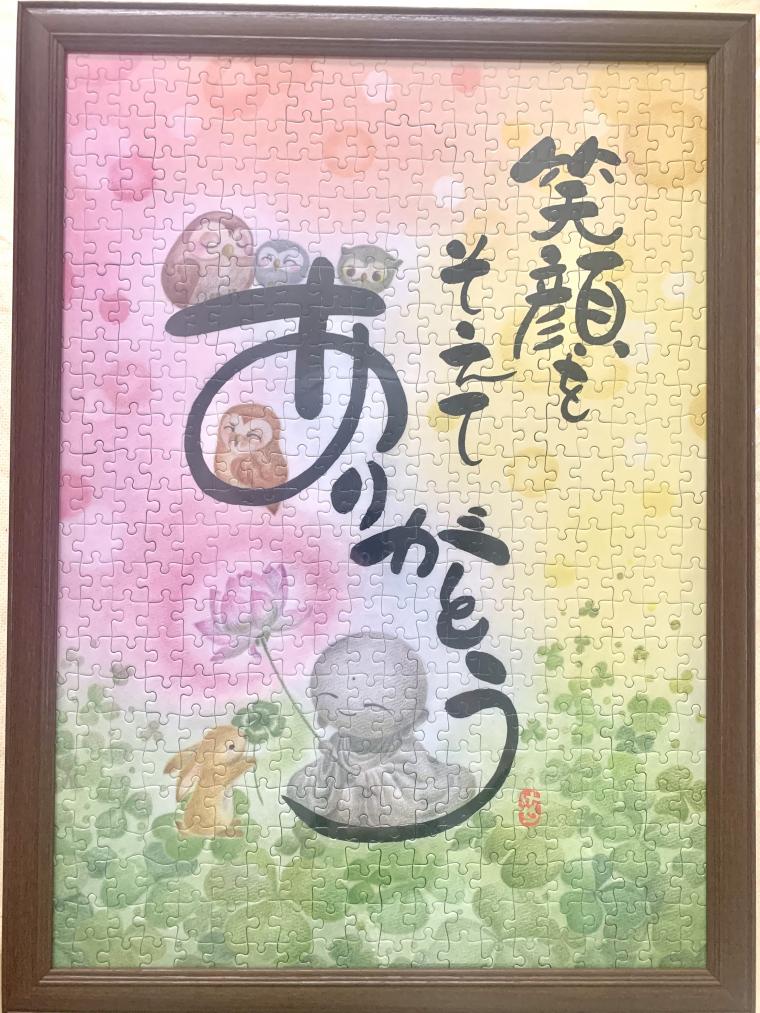 笑顔を
そえて
ありがとう